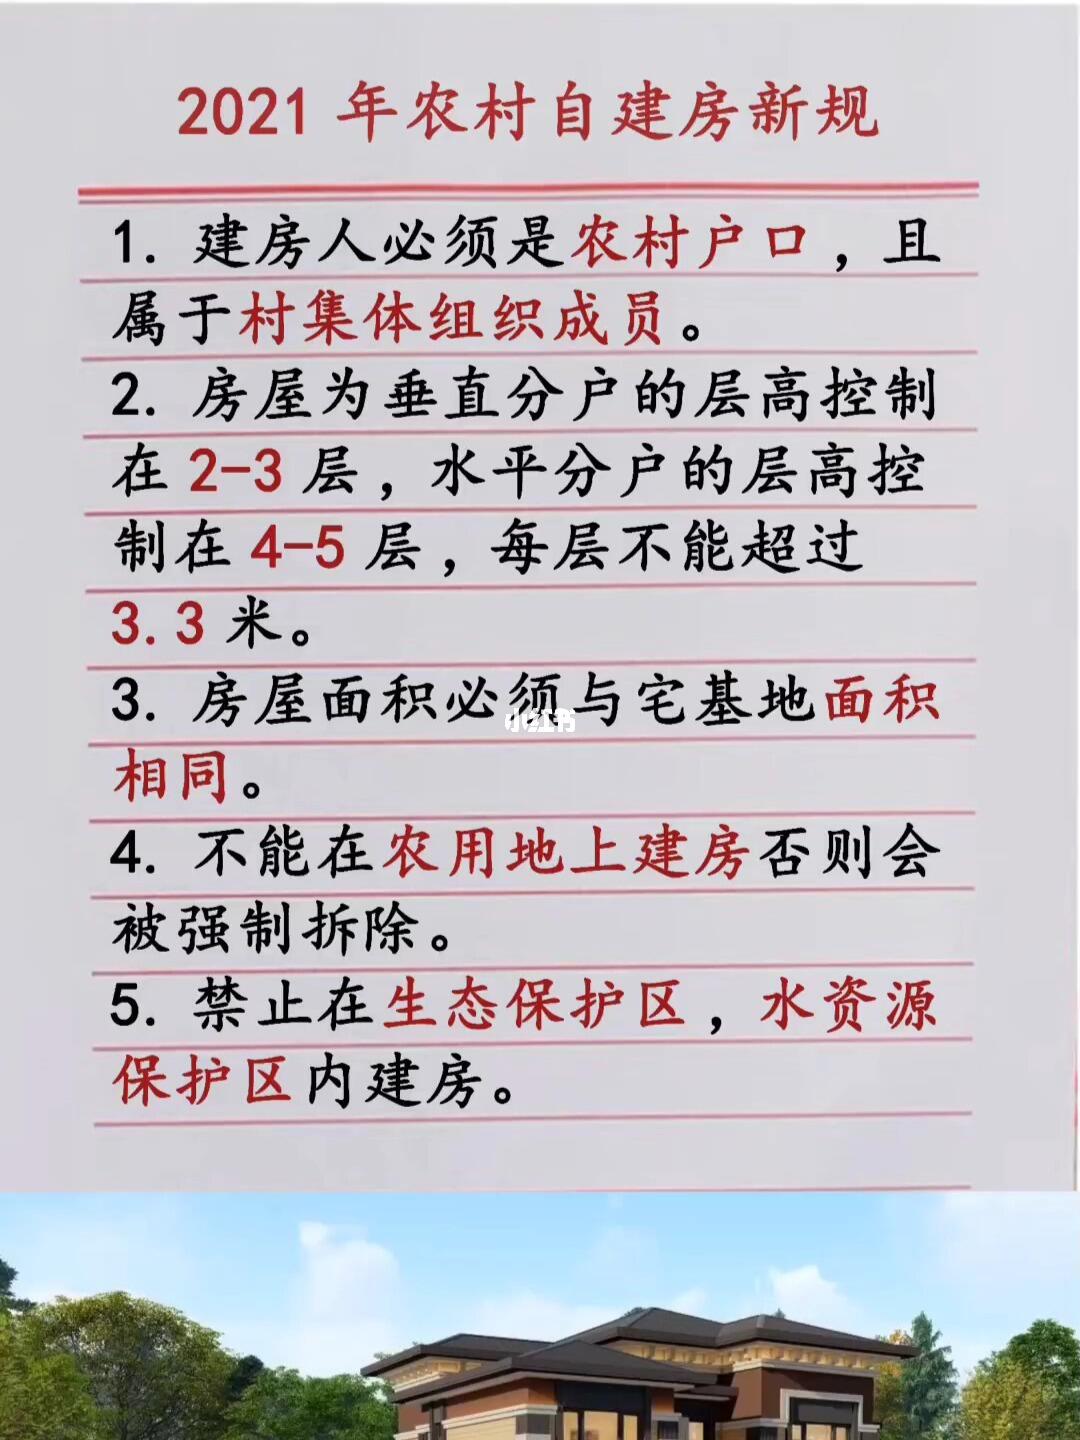 2021 年农村自建房新规
1. 建房人必须是农村户口，且
属于村集体组织成员。
2. 房屋为垂直分户的层高控制
在 2-3 层，水平分户的层高控
制在 4-5 层，每层不能超过
3.3 米。
3. 房屋面积必须与宅基地面积
小红书
相同。
4. 不能在农用地上建房否则会
被强制拆除。
5. 禁止在生态保护区，水资源
保护区内建房。